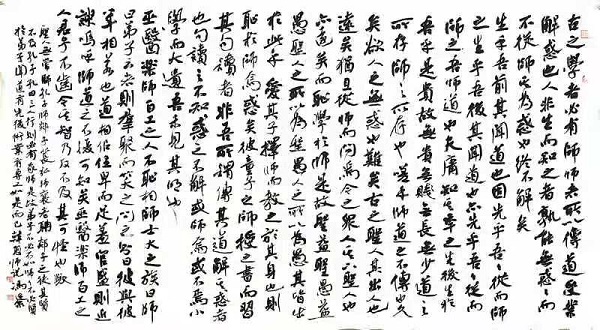 古之學者必有師師者所以傳道受業
解惑也人非生而知之者孰能無惑惑而
不從師其為惑也終不解矣
生乎吾前其聞道也固先乎吾吾從而師
之生乎吾後其聞道也亦先乎吾吾從而
師之吾師道也夫庸知其年之先後生於
吾乎是故無貴無賤無長無少道之
所存師之所存也嗟乎師道之不傳也久
矣欲人之無惑也難矣古之聖人其出人也
遠矣猶且從師而問焉今之眾人其下聖人也
亦遠矣而恥學於師是故聖益聖愚益
愚聖人之所以為聖愚人之所以為愚其皆出
於此乎愛其子擇師而教之於其身也
恥於師焉惑矣彼童子之師授之書而習
其句讀者非吾所謂傳其道解其惑者
也句讀之不知惑之不解或師焉或不焉小
學而大遺吾未見其明也
巫醫樂師百工之人不恥相師士大夫之族曰師
曰弟子云者則群聚而笑之問之則曰彼與彼
年相若也道相似也位卑則足羞官盛則近
諛嗚呼師道之不復可知矣巫醫樂師百工之
人君子不齒今其智乃反不能及其可怪也歟
聖人無常師孔子師郯子萇弘師襄老聃郯子之徒其賢
不及孔子孔子曰三人行則必有我師是故弟子不必不如師師不必賢
於弟子聞道有先後術業有專攻如是而已韓愈師說